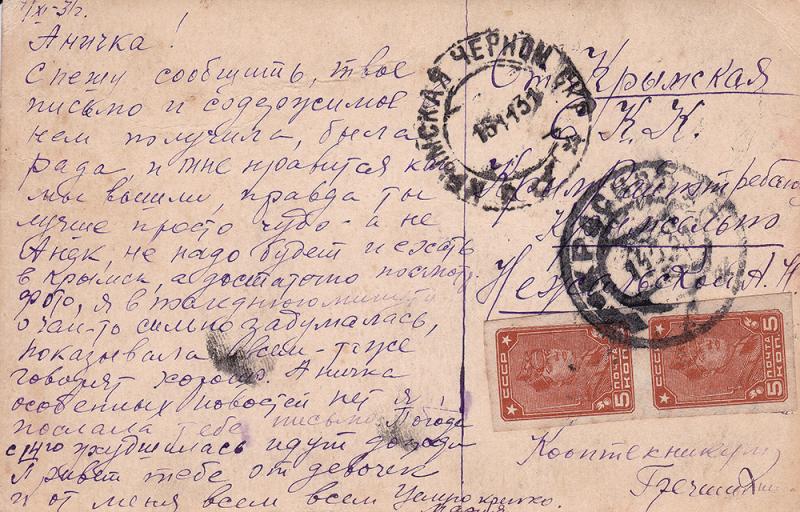 /XI-31г.
Аничка!
Спешу сообщить, твое
письмо и содержимое
нем получила, была
рада, и мне нравится как
мы вышли, правда ты
лучше просто чудо - а не
Анек, не надо будет и ехать
в Крымск, а достаточно посмотр.
фото, я в последнюю минуту
о чем-то сильно задумалась,
показывала всем - тоже
говорят хорошо. Аничка
особенных новостей нет я
послала тебе письмо Погода
с 14го ухудшилась идут дожди
Привет тебе от девочек
и от меня всем всем Целую крепко.
Мария
Ст. Крымская
С. К. К.
Крымрайпотребсоюз
КРЫМСКАЯ ЧЕРНОМ. ОКР.
15 11 31
СССР
ПОЧТА
5 КОП.
СССР
ПОЧТА
5 КОП.
Кооптехникум